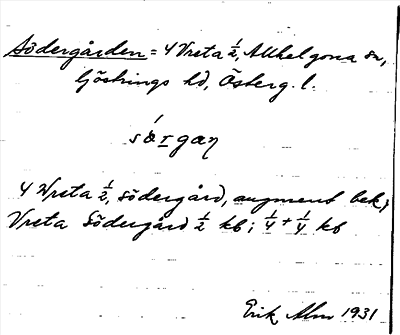 Södergården = 4 Vreta ½, Allhelgona sn,
Göstrings hd, Österg. l.
sǿrgaη
4 Vreta ½, södergård, augment bek.;
Vreta Södergård ½ kb; ¼ + ¼ kb
Erik Alm 1931